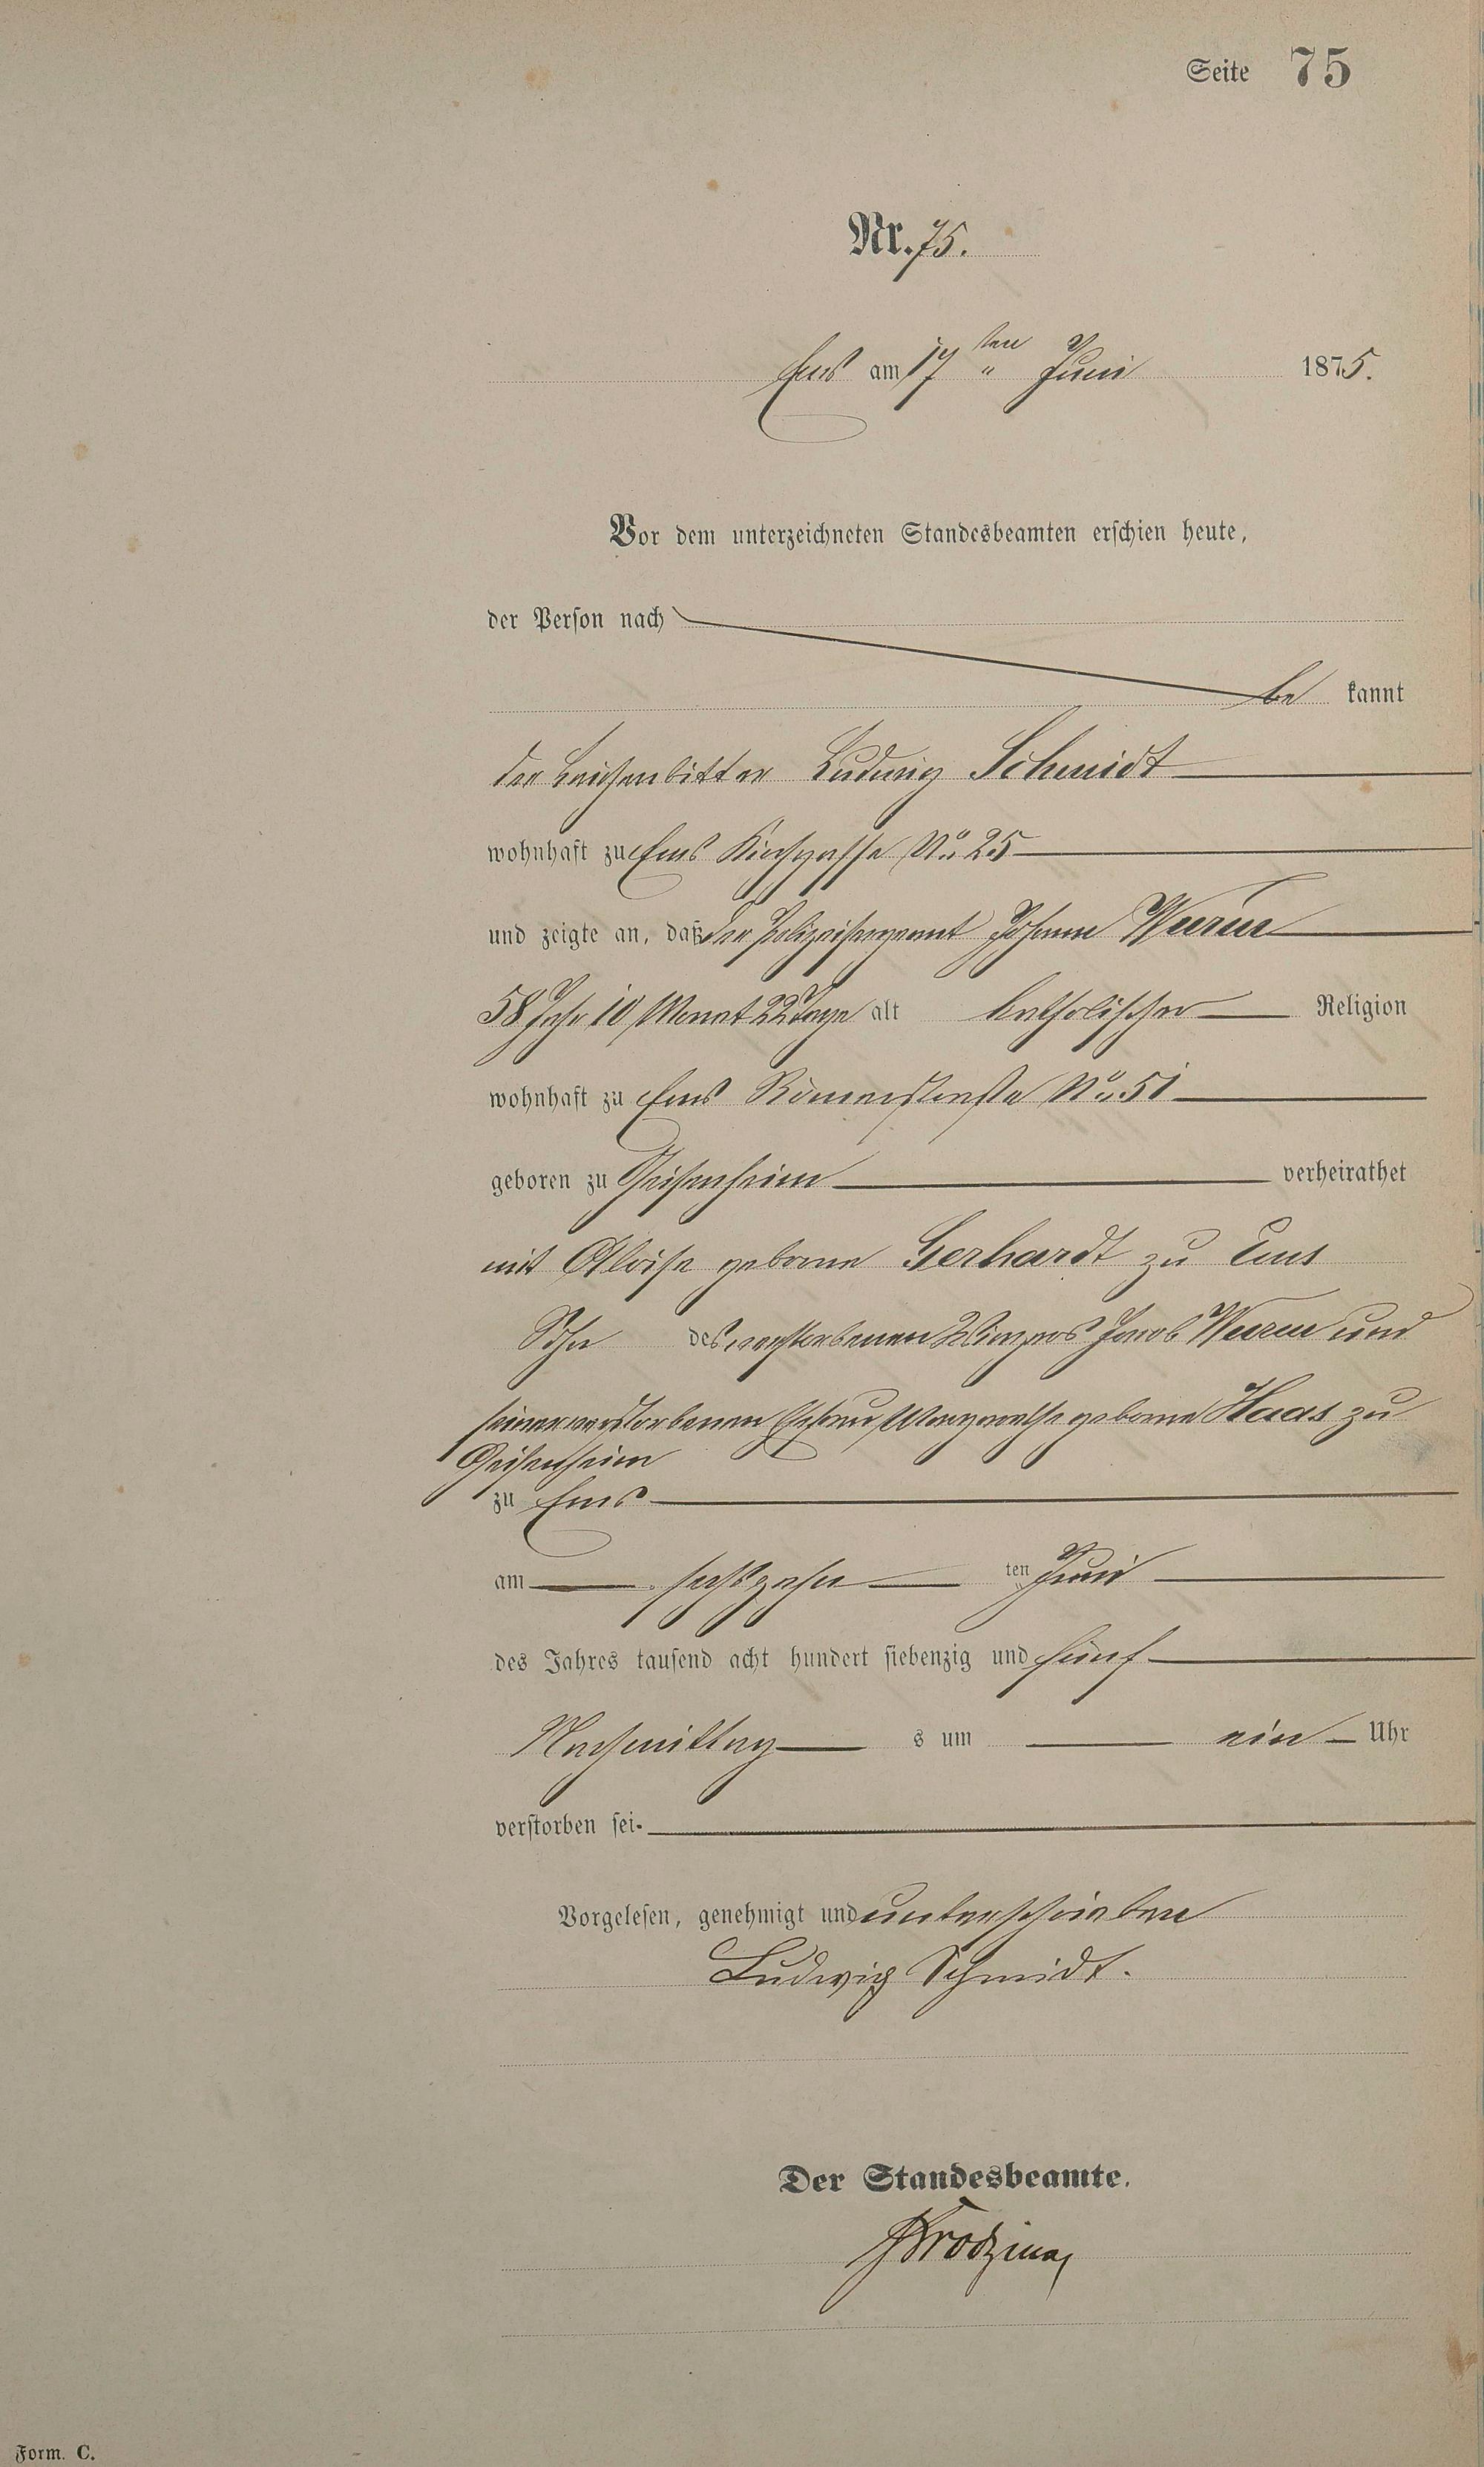 Seite 75
Nr. 75.
Ems am 17ten Juni 1875.
Vor dem unterzeichneten Standesbeamten erschien heute,
der Person nach
be kannt
der Leichenbitter Ludwig Schmidt
wohnhaft zu Ems Kirchgasse No. 25
und zeigte an, daß der Polizeisergeant Johann Wurm
58 Jahr 10 Monat 22 Tage alt katholischer Religion
wohnhaft zu Ems Römerstraße No. 51
geboren zu Geisenheim verheirathet
mit geborne Gerhardt zu Ems
Sohn des verstorbenen Winzers Jacob Wurm und
seiner verstorbenen Ehefrau Margarethe geborne Haas zu
Geisenheim
zu Ems
am sechszehn ten Juni
des Jahres tausend acht hundert siebenzig und fünf
Nachmittag s um ein Uhr
verstorben sei.
Vorgelesen, genehmigt und unterschrieben
Ludwig Schmidt.
Der Standesbeamte.
Form. C.